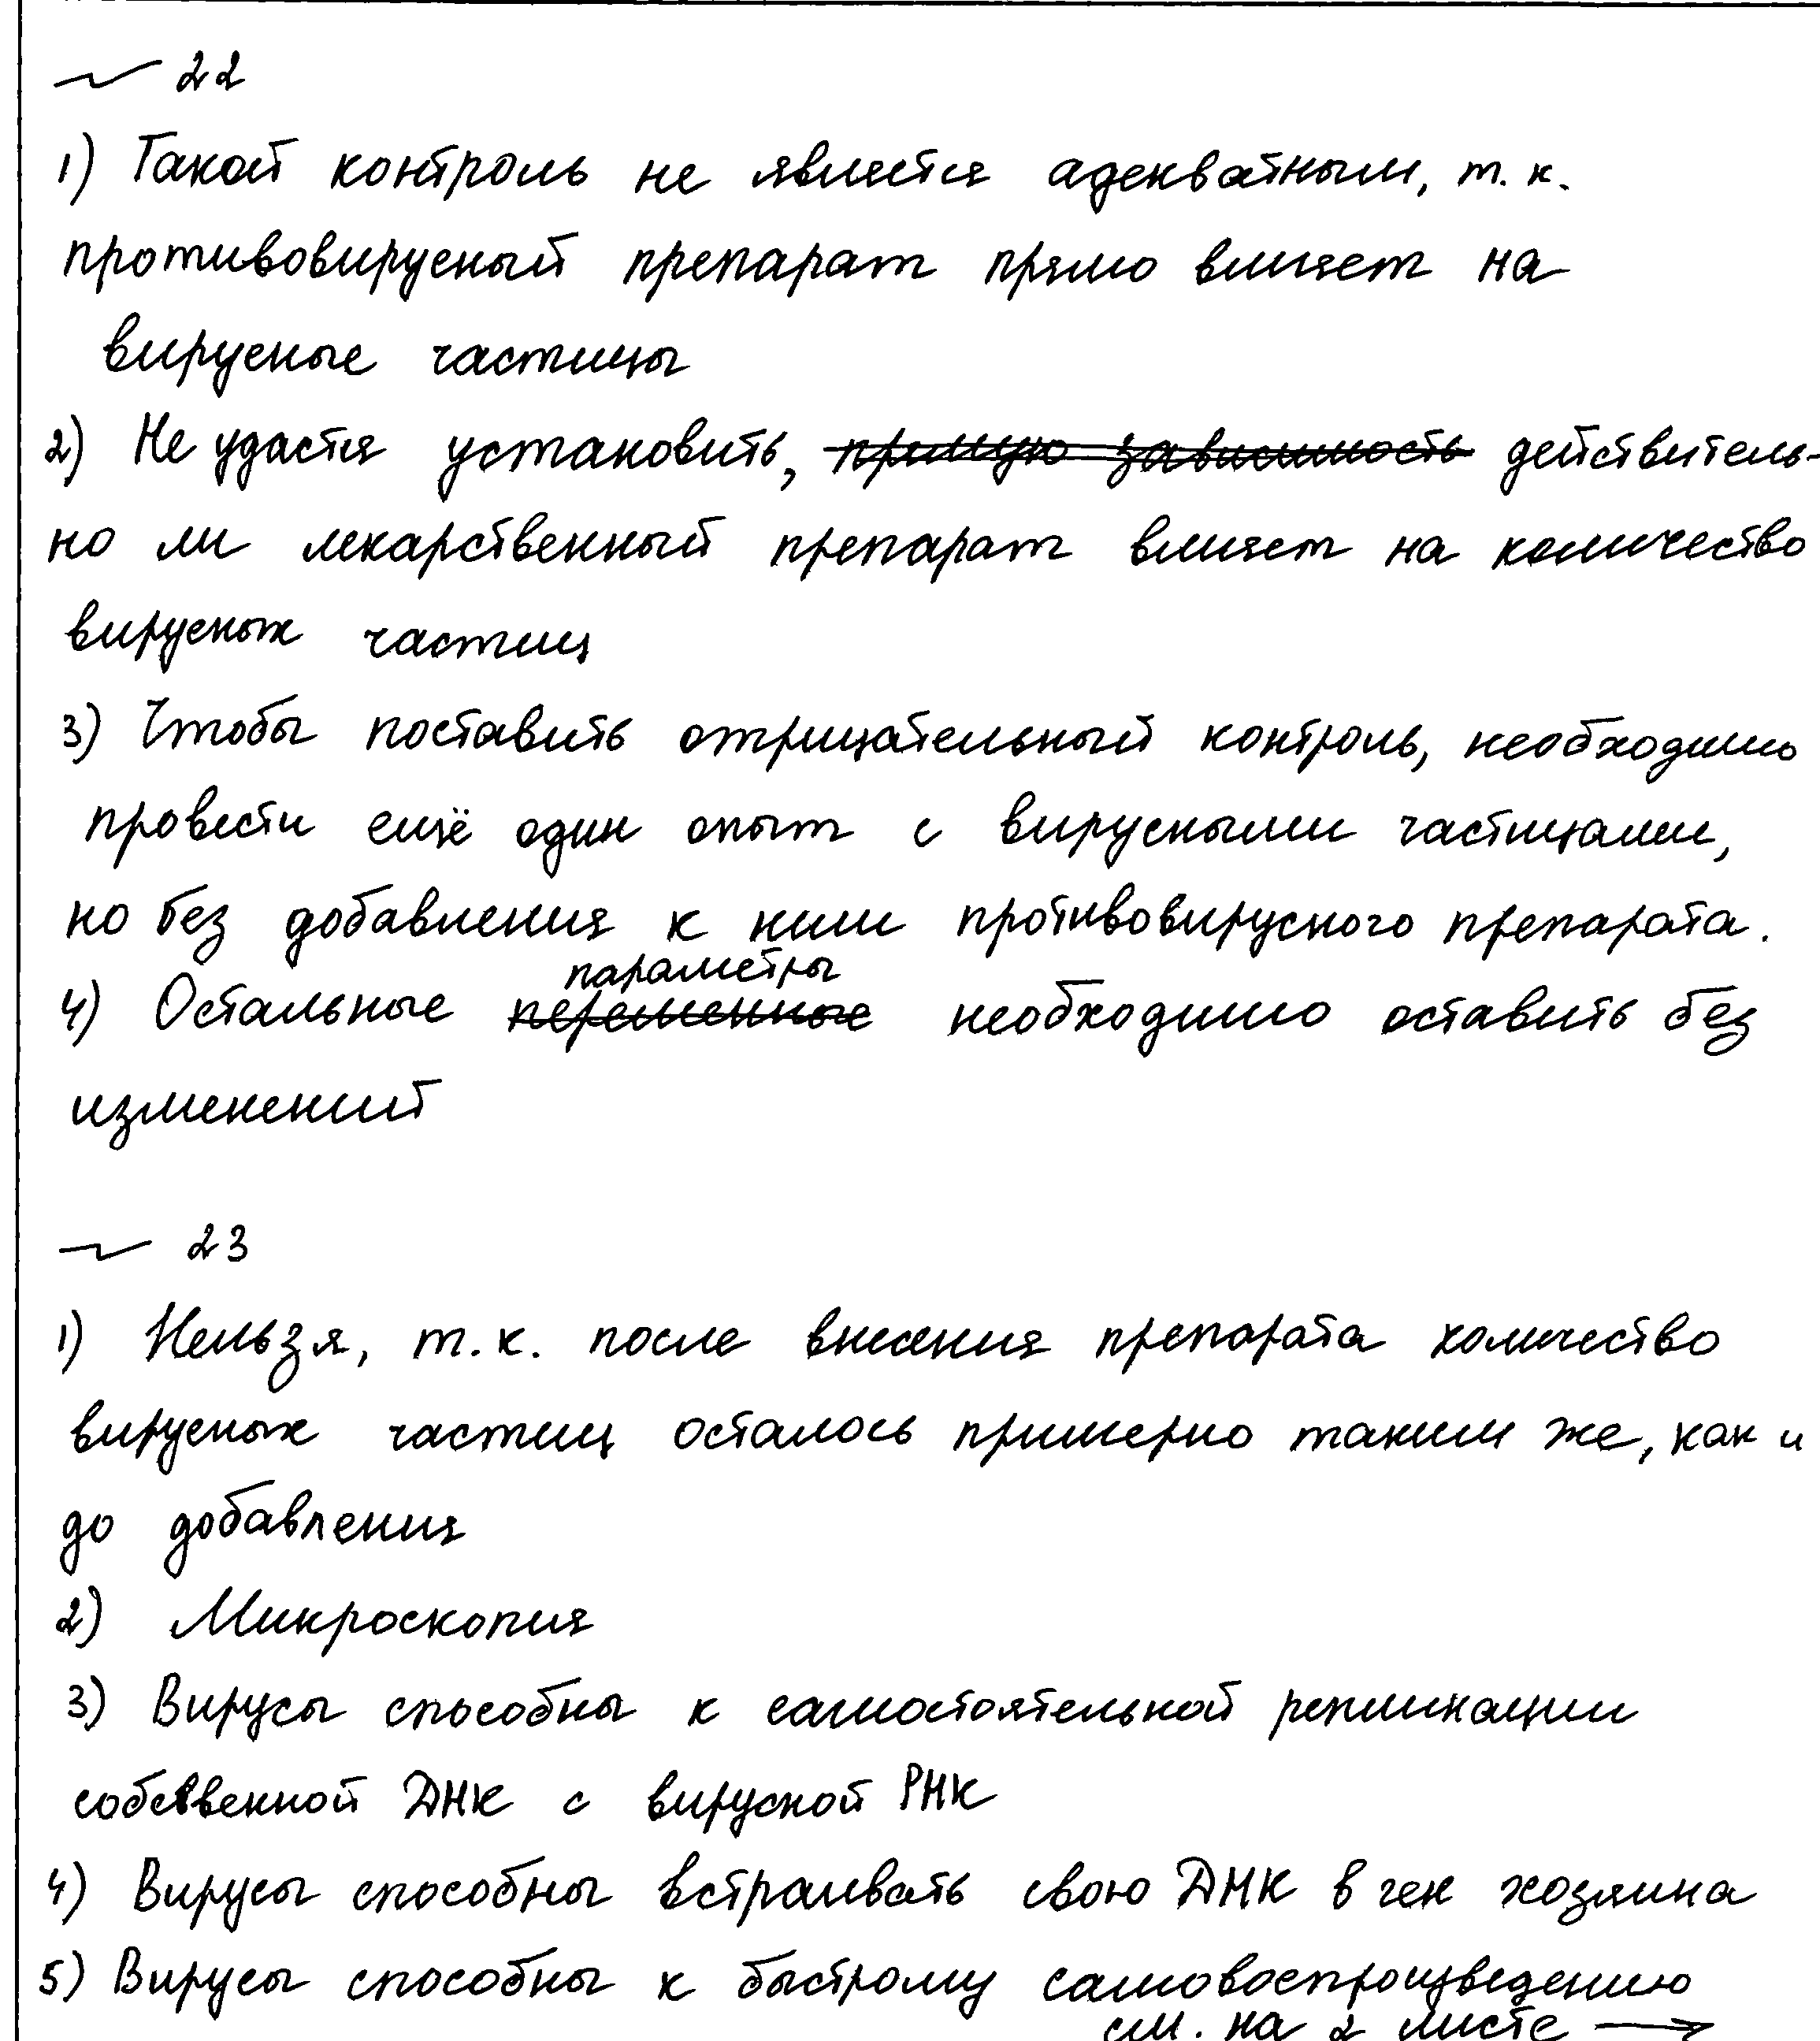 ~ 22
1) Такой контроль не является адекватным, т.к.
противовирусный препарат прямо влияет на
вирусные частицы
2) Не удастся установить, прямую зависимость действитель-
но ли лекарственный препарат влияет на количество
вирусных частиц
3) Чтобы поставить отрицательный контроль, необходимо
провести ещё один опыт с вирусными частицами,
но без добавления к ним противовирусного препарата.
параметры
4) Остальные переменные необходимо оставить без
изменений
~ 23
1) Нельзя, т.к. после внесения препарата количество
вирусных частиц осталось примерно таким же, как и
до добавления
2) Микроскопия
3) Вирусы способны к самостоятельной репликации
собственной ДНК с вирусной РНК
4) Вирусы способны встраивать свою ДНК в ген хозяина
5) Вирусы способны к быстрому самовоспроизведению
см. на 2 листе →